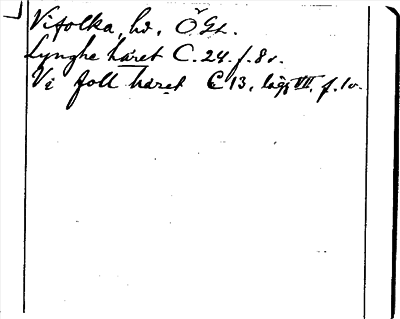 Vifolka, hd. ÖGt.
Lynghe häret C. 24. f. 8 v.
Vi foll häret C 13, lägg VII. f. 1 v.